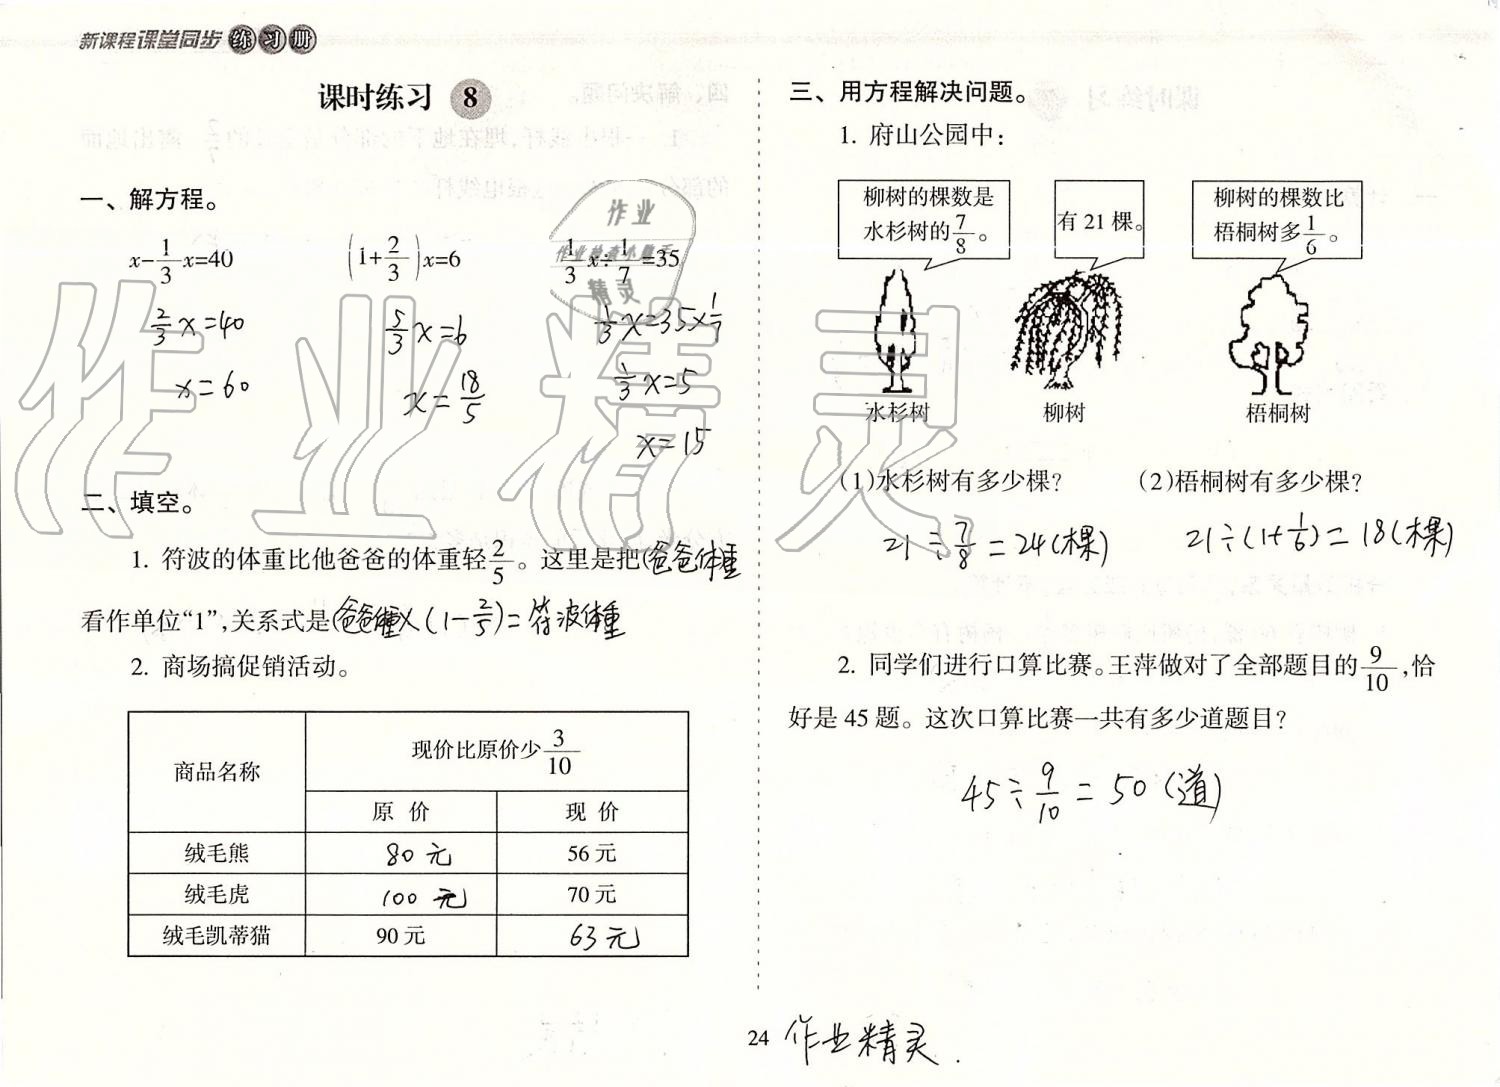 新课程课堂同步练习册
课时练习 8
一、解方程。
x-1/3x=40 (1+2/3)x=6 1/3x÷1/7=35
2/3x=40 5/3x=6 1/3x=35×1/7
x=60 x=18/5 1/3x=5
x=15
二、填空。
1. 符波的体重比他爸爸的体重轻2/5。这里是把(爸爸体重
看作单位“1”,关系式是(爸爸体重×(1-2/5)=符波体重
2. 商场搞促销活动。
商品名称 现价比原价少3/10
原 价 现 价
绒毛熊 80元 56元
绒毛虎 100元 70元
绒毛凯蒂猫 90元 63元
三、用方程解决问题。
1. 府山公园中:
柳树的棵数是 有21棵。 柳树的棵数比
水杉树的7/8。 梧桐树多1/6。
水杉树 柳树 梧桐树
(1)水杉树有多少棵? (2)梧桐树有多少棵?
21÷7/8=24(棵) 21÷(1+1/6)=18(棵)
2. 同学们进行口算比赛。王萍做对了全部题目的9/10,恰
好是45题。这次口算比赛一共有多少道题目?
45÷9/10=50(道)
24 作业精灵.
作业精灵
作业
作业检查小助手
精灵